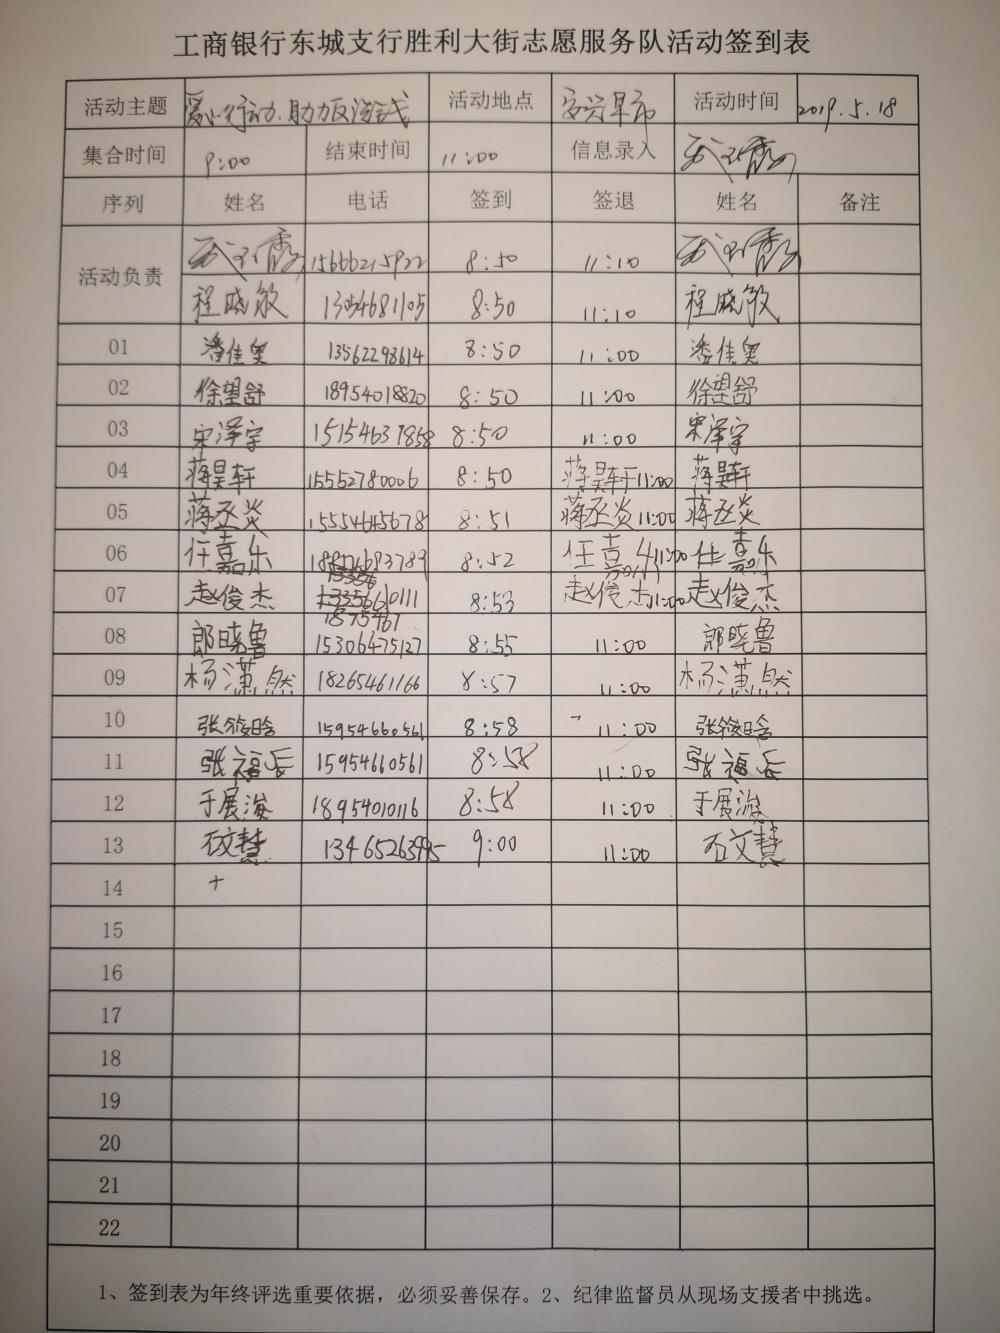 工商银行东城支行胜利大街志愿服务队活动签到表
活动主题 爱心行动.助力反洗钱 活动地点 安兴早市 活动时间 2019.5.18
集合时间 9:00 结束时间 11:00 信息录入
序列 姓名 电话 签到 签退 姓名 备注
活动负责
15666215922 8:50 11:10
程晓敏 13054681105 8:50 11:10 程晓敏
01 潘佳奥 13562298614 8:50 11:00 潘佳奥
02 徐望舒 18954018820 8:50 11:00 徐望舒
03 宋泽宇 15154631858 8:50 11:00 宋泽宇
04 蒋昊轩 15552780006 8:50 蒋昊轩11:00 蒋昊轩
05 蒋丞炎 15554645678 8:51 蒋丞炎11:00 蒋丞炎
06 任嘉乐 8:52 任嘉乐11:00 任嘉乐
07 赵俊杰 8:53 赵俊杰11:00 赵俊杰
08 郎晓鲁 15306475127 8:55 11:00 郎晓鲁
09 杨潇然 18265461166 8:57 11:00 杨潇然
10 张筱晗 15954660561 8:58 11:00 张筱晗
11 张福辰 15954660561 8:58 11:00 张福辰
12 于展浚 18954010116 8:58 11:00 于展浚
13 石文慧 13465263995 9:00 11:00 石文慧
14
15
16
17
18
19
20
21
22
1、签到表为年终评选重要依据，必须妥善保存。2、纪律监督员从现场支援者中挑选。